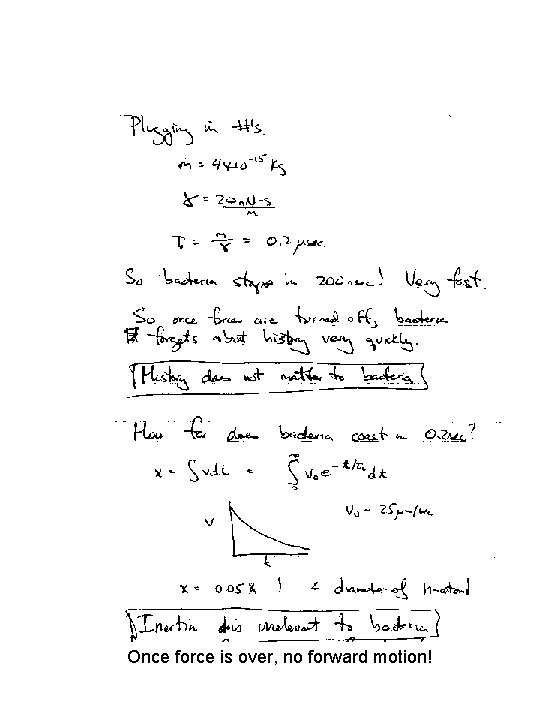 Plugging in #'s.
m = 4x10^-15 Kg
γ = 20 nN-s/m
τ = m/γ = 0.2 μsec
So bacteria stops in 200 nsec! Very fast.
So once forces are turned off, bacteria
forgets about history very quickly.
History does not matter to bacteria
How far does bacteria coast in 0.2 μsec?
x = ∫ v dt = ∫₀^∞ v₀ e^-t/τ dt
v₀ = 25 μm/sec
v
t
x = 0.05 Å ! < diameter of H-atom!
Inertia is irrelevant to bacteria
Once force is over, no forward motion!